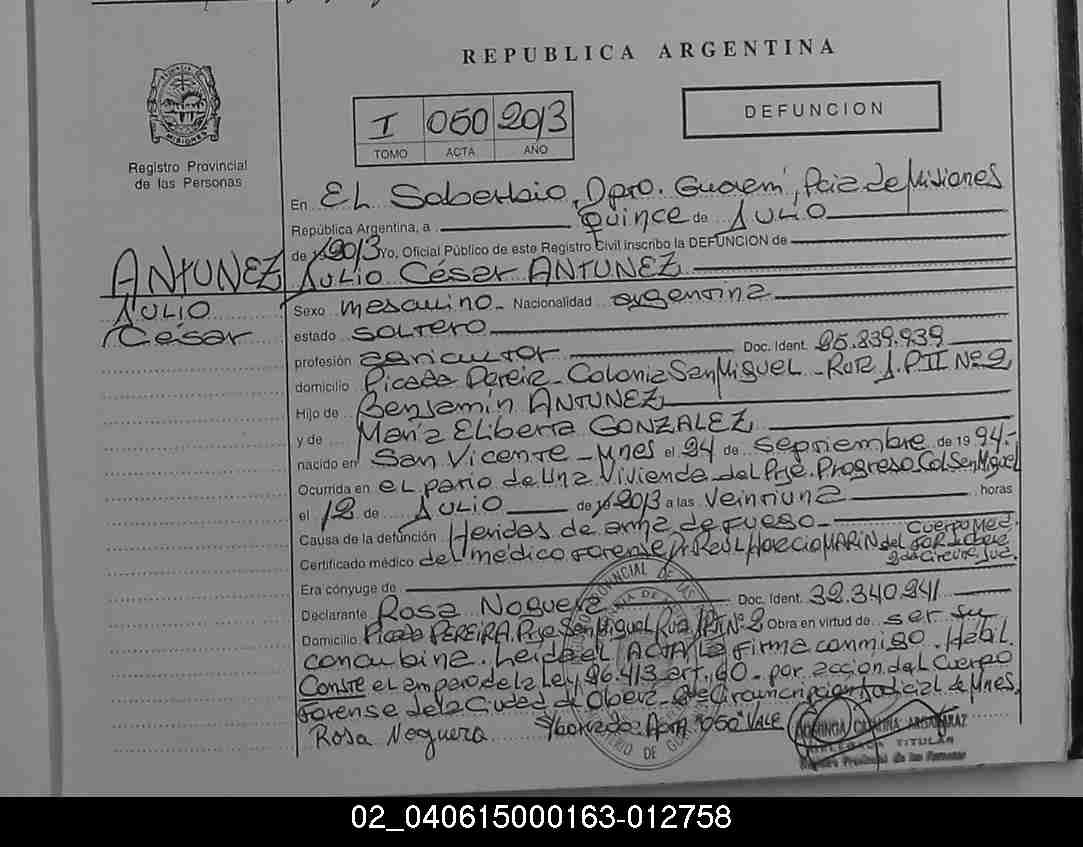 REPUBLICA ARGENTINA
DEFUNCION
I 060 2013
TOMO ACTA AÑO
MISIONES
Registro Provincial
de las Personas
En EL Soberbio, Dpro. Guaraní, Pcia de Misiones
República Argentina, a Quince de JULIO
de 2013 Yo, Oficial Público de este Registro Civil inscribo la DEFUNCION de
ANTUNEZ
JULIO
César
JULIO César ANTUNEZ
Sexo masculino - Nacionalidad argentina
estado SOLTERO
profesión agricultor Doc. Ident.
domicilio Picada Pereira - Colonia San Miguel - Ruta J.P II Nº 2
Hijo de Benjamín ANTUNEZ
y de María Eliberta GONZALEZ
nacido en San Vicente - Mnes el 24 de Septiembre de 1994.-
Ocurrida en el patio de Una Vivienda del Pje. Progreso Col. San Miguel
el 12 de JULIO de 2013 a las Veintiuna horas
Causa de la defunción Heridas de arma de fuego -
Certificado médico del médico forense Dr. RAUL HORACIO MARIN del Cuerpo Med.
Era cónyuge de
Declarante Rosa Noguera Doc. Ident. 32.340.241
Domicilio Picada PEREIRA. Pje San Miguel Ruta JPII Nº 2 Obra en virtud de ser su
concubina. Leída el ACTA La firma conmigo. Habil.
Conste el amparo de la Ley 26.413 art. 60 - por accion del Cuerpo
Forense de la Ciudad de Obera - 2da Circuncripcion Judicial de Mnes.
Rosa Noguera S/borrado: "060" VALE
PROVINCIAL DE LAS
DELEGADA TITULAR
Registro Provincial de las Personas
02_040615000163-012758